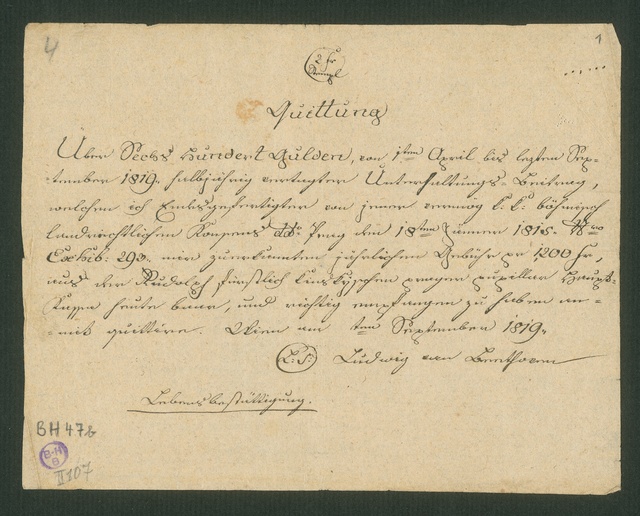 4
1
2 fr
Stempl
Quittung
Über Sechs Hundert Gulden, von 1ten April bis letzten Sep-
tember 1819. halbjährig vertagter Unterhaltungs-Beitrag,
welchen ich Endesgefertigter von jener vermög k: k: böhmisch
landrechtlichen Konsens ddto Prag den 18ten Jänner 1815. Nro
Exhib: 293. mir zuerkannten jährlichen Gebühr pr 1200 fr,
aus der Rudolph fürstlich Kinskyschen prager pupillar Haupt-
Kassa heute baar, und richtig empfangen zu haben an-
-mit quittire. Wien am ten September 1819.
L: S: Ludwig van Beethoven
Lebensbestättigung.
BH 47b
B-H
B
II 107